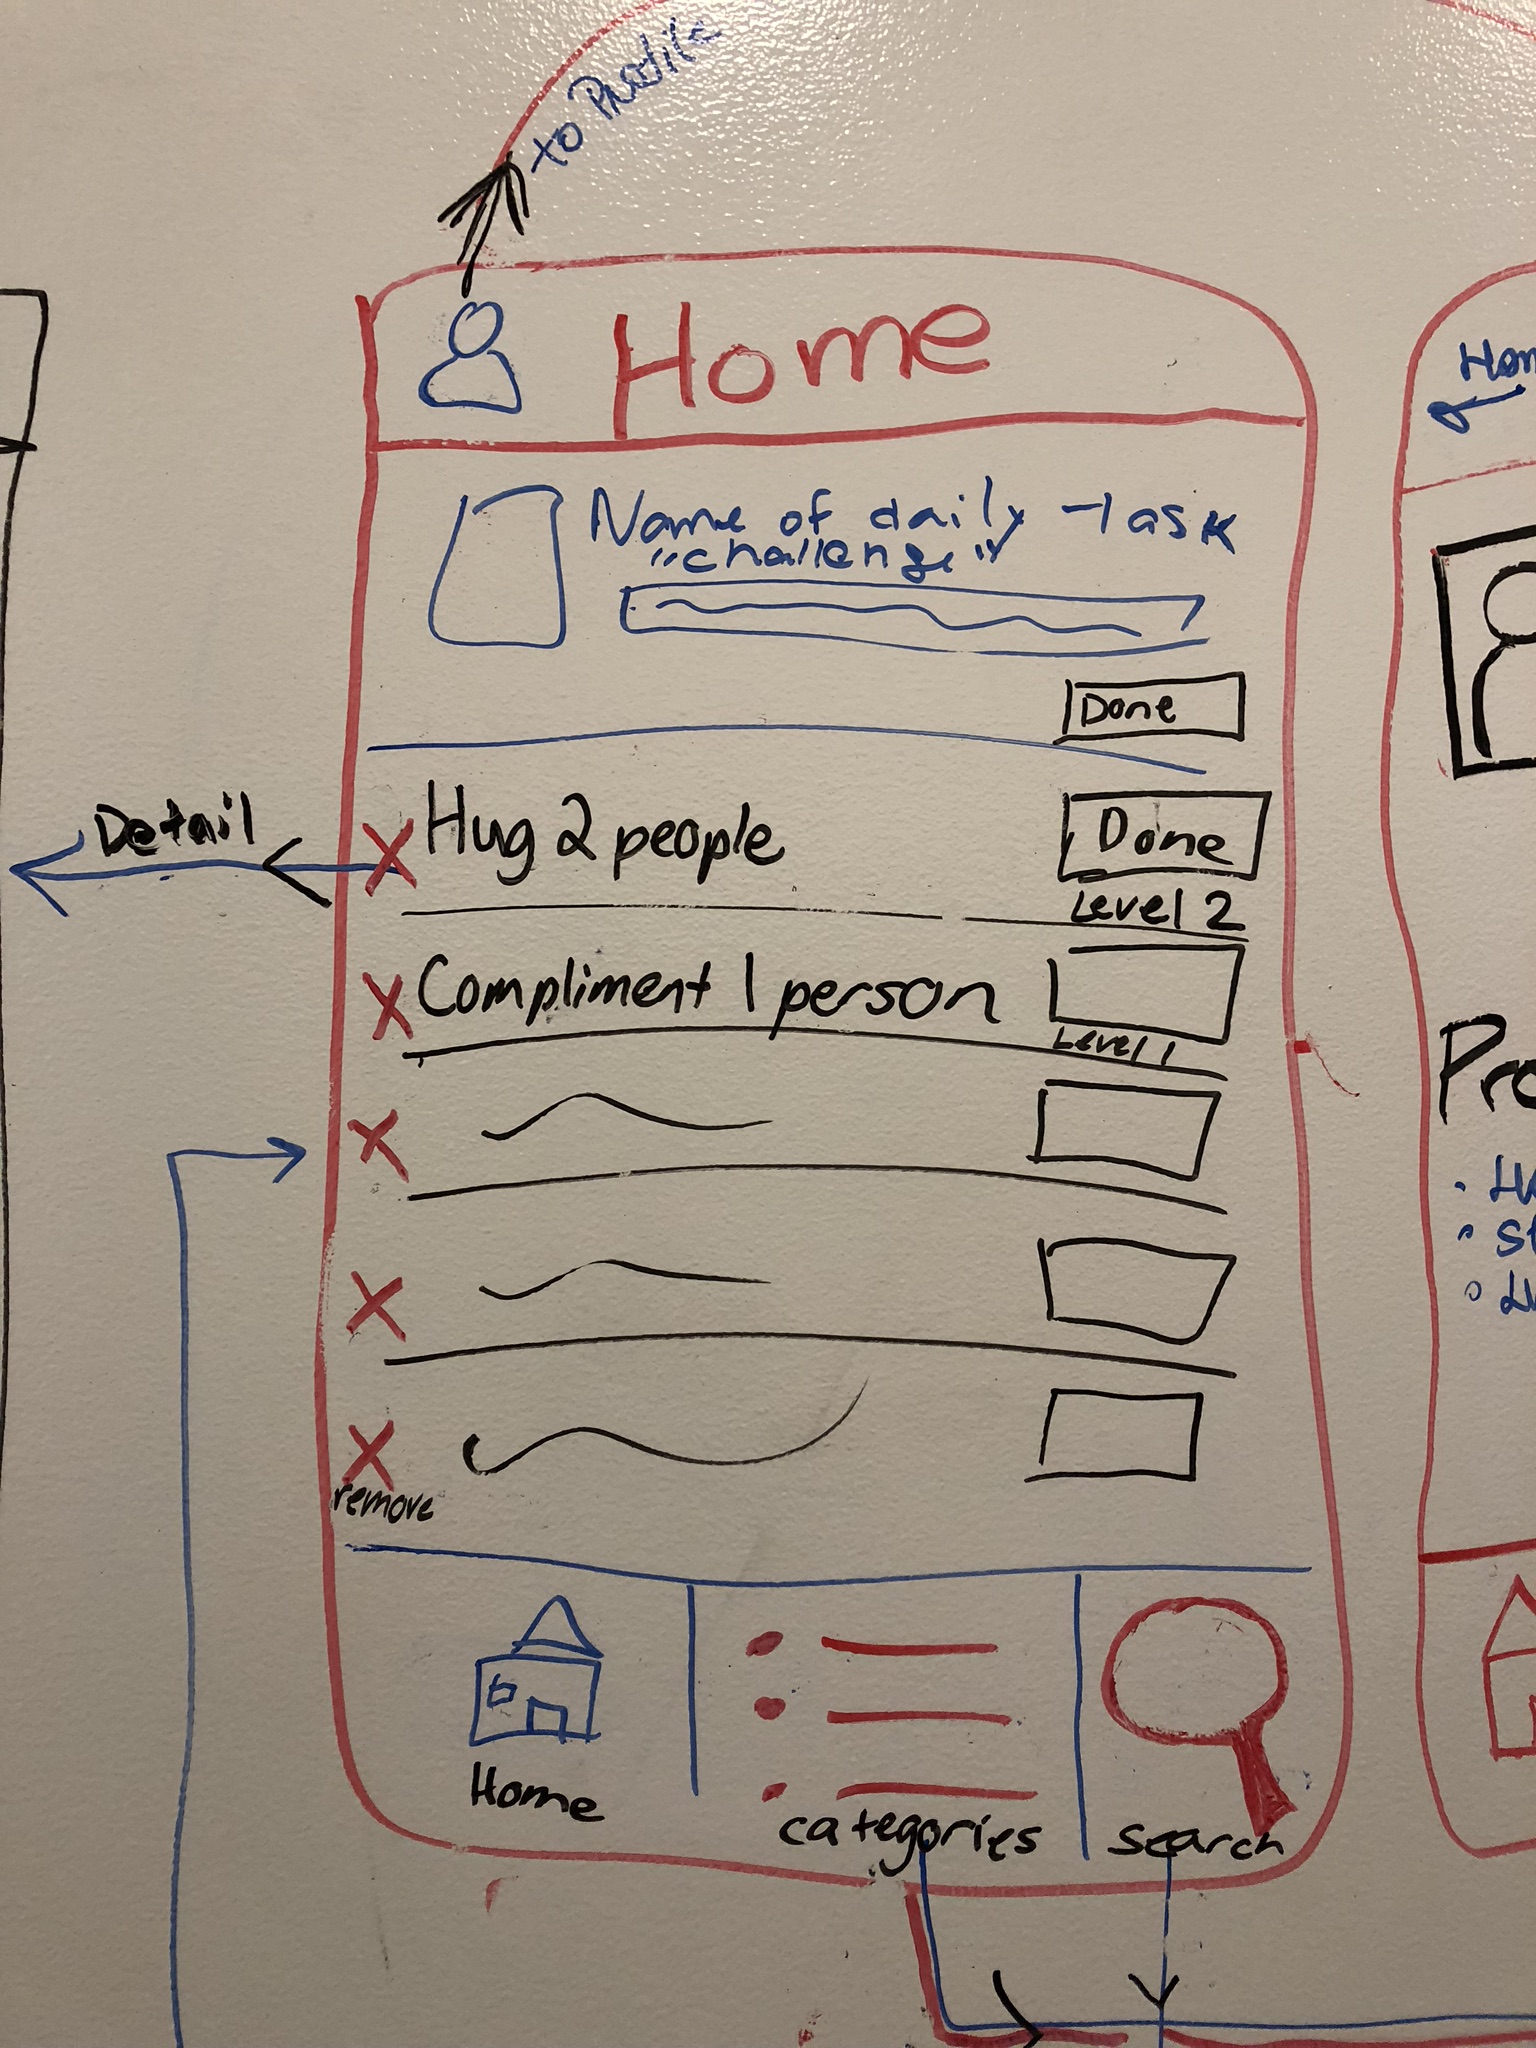 to Profile
Home
Name of daily task
"challenge"
Done
Detail
Hug 2 people
Done
Level 2
Compliment 1 person
Level 1
remove
Home
categories
search